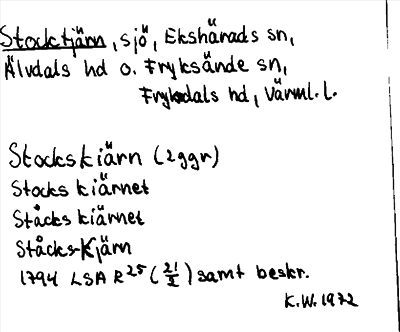 Stocktjärn, sjö, Ekshärads sn,
Älvdals hd o. Fryksände sn,
Fryksdals hd, Värml. l.
Stockskiärn (2 ggr)
Stocks kiärnet
Ståcks kiärnet
Ståcks-Kjärn
1794 LSA R25 (21/2) samt beskr.
K.W. 1972